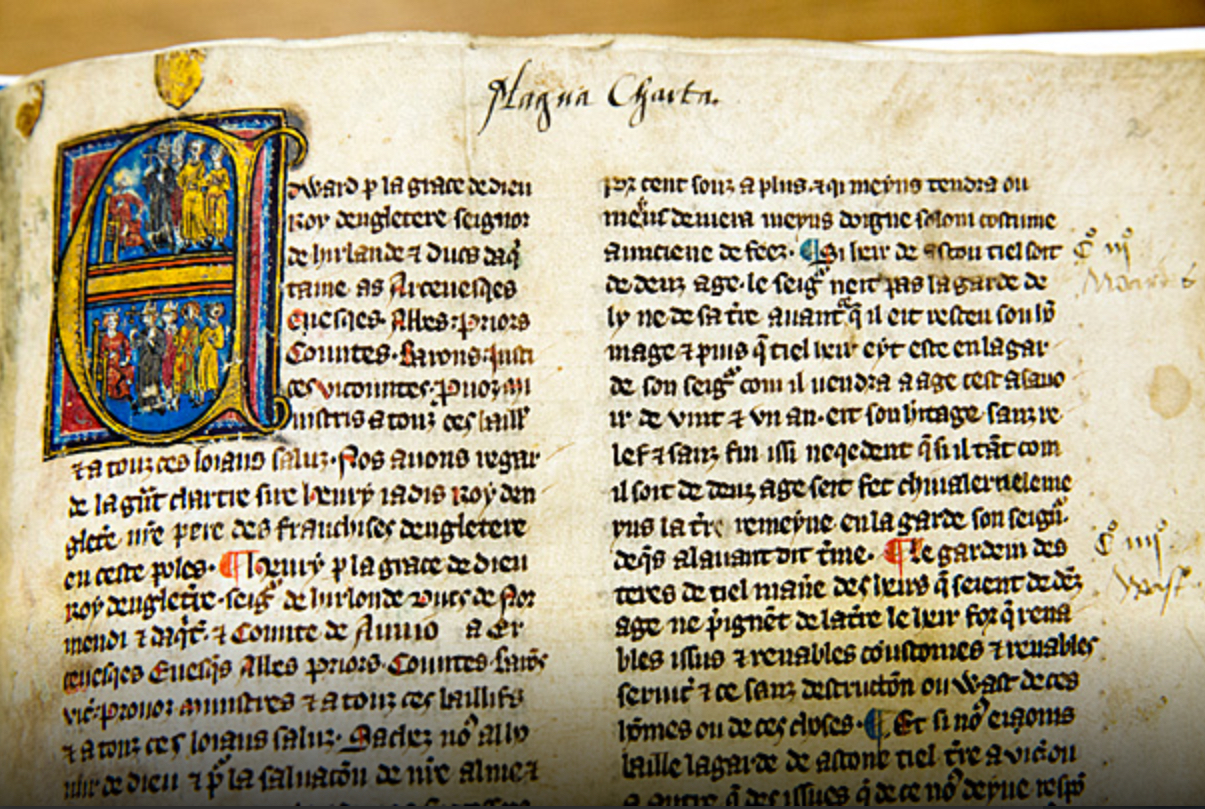 Magna Charta.
Edward p la grace de dieu
Roy dengletere seignor
de hirlande ⁊ ducs daq̃
taine as Arceuesqes
Euesqes. Abbes. priors
Countes. Barons. iusti
ces vicountes. puoz
ministris a touz ces baill
⁊ a touz ces loiaus saluz. Nos auons regar
de la gñt chartre sire henry iadis Roy den
gletẽ nr̃e pere des fraunchises dengletere
en ceste poles. ¶ Henry p la grace de dieu
roy dengletẽre. seigͬ de hirlonde ducs de Nor
mendi ⁊ daqt̃. ⁊ Counte de a Er
ceuesqes Euesqs Abbes priors. Countes. barõs
vic̃. ministres ⁊ a touz ces baillifs
⁊ a touz ces loiaus saluz. Sachez no⁹
de dieu ⁊ p̱ la saluacõn de nr̃e alme ⁊
por cent souz a plus. ⁊ qi meyns tendra ou
meins deuera meyns doigne solom costume
aunciene de feez. ¶ Si heir de ascou tiel soit
de denz age. le seigͬ neit pas la garde de
ly ne de sa tr̃e auant q̃ il eit resceu son
mage ⁊ puis q̃ tiel heir eyt este en la gar
de son seigͬ com il uendra a age cest asauo
ir de vint ⁊ vn an. eit son h̃itage sanz re
lef ⁊ sanz fin issi neqedent q̃ si il tãt com
il soit de denz age seit fet chiualer
yns la tr̃e remeyne en la garde son seign̄.
deqs al auant dit t̃me. ¶ Le gardein des
teres de tiel man̄e des heirs q̃ seient de dẽz
age ne p̃ignẽt de la tr̃e le heir for q̃ rena
bles issus ⁊ renables coustomes ⁊ renables
seruic̃ ⁊ ce sanz destructõn ou wast de ces
hõmes ou de ces choses. ¶ Et si no⁹ eioms
baille la garde de ascone tiel tr̃e a vicou
a autre q̃ des issues q̃ de ce no⁹ deyue resp̃
C° iij°
C° iiij°
Wast.